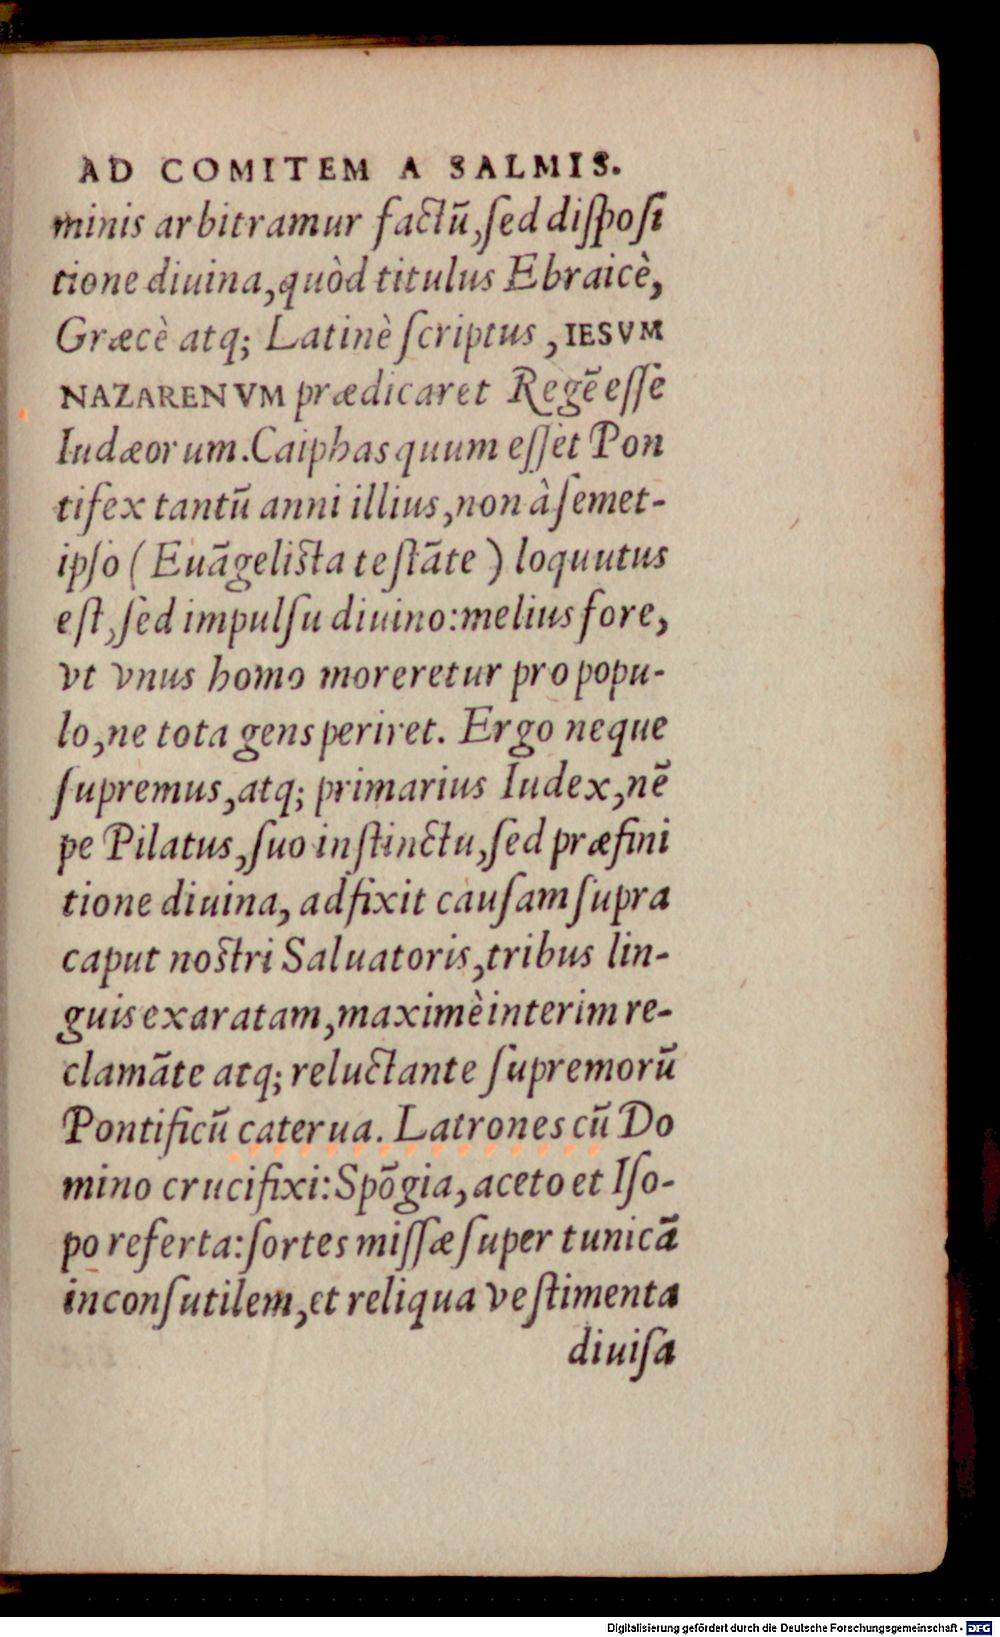 AD COMITEM A SALMIS.
minis arbitramur factū, ſed diſpoſi
tione diuina, quòd titulus Ebraicè,
Græcè atq; Latinè ſcriptus, IESVM
NAZARENVM prædicaret Regē eſſe
Iudæorum. Caiphas quum eſſet Pon
tifex tantū anni illius, non à ſemet-
ipſo (Euāgeliſta teſtāte) loquutus
eſt, ſed impulſu diuino: melius fore,
vt vnus homo moreretur pro popu-
lo, ne tota gens periret. Ergo neque
ſupremus, atq; primarius Iudex, nē
pe Pilatus, ſuo inſtinctu, ſed præfini
tione diuina, adfixit cauſam ſupra
caput noſtri Saluatoris, tribus lin-
guis exaratam, maximè interim re-
clamāte atq; reluctante ſupremorū
Pontificū caterua. Latrones cū Do
mino crucifixi: Spōgia, aceto et Iſo-
po referta: ſortes miſſæ ſuper tunicā
inconſutilem, et reliqua veſtimenta
diuiſa
Digitalisierung gefördert durch die Deutsche Forschungsgemeinschaft - DFG